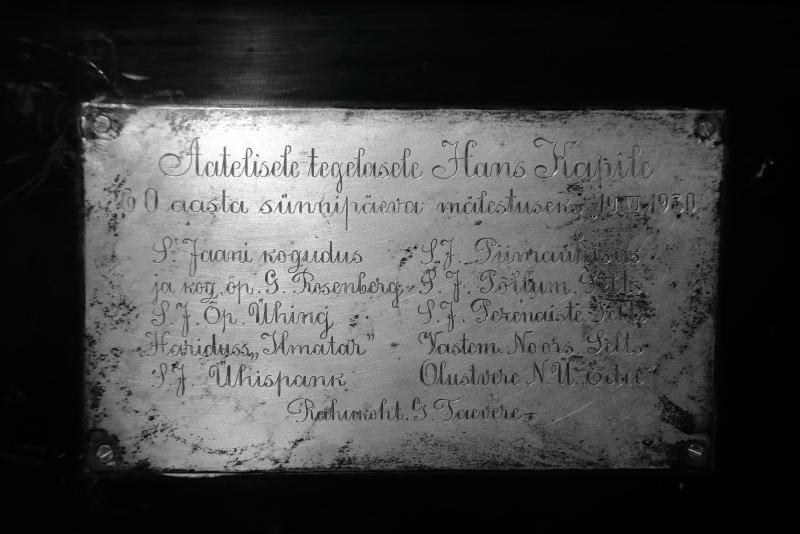 Aatelisele tegelasele Hans Kapile
60 aasta sünnipäeva mälestuseks, 19.VI.1930
S. Jaani kogudus
ja kog. õp. G. Rosenberg
S. J. Õp. Ühing
Hariduss. „Ilmatar”
S. J. Ühispank
S. J. Piimaühisus
S. J. Põllum. Selts
S. J. Perenaiste Selts
Vastem. Noors. Selts
Olustvere N. Ü.
Rahukoht. G. Taevere